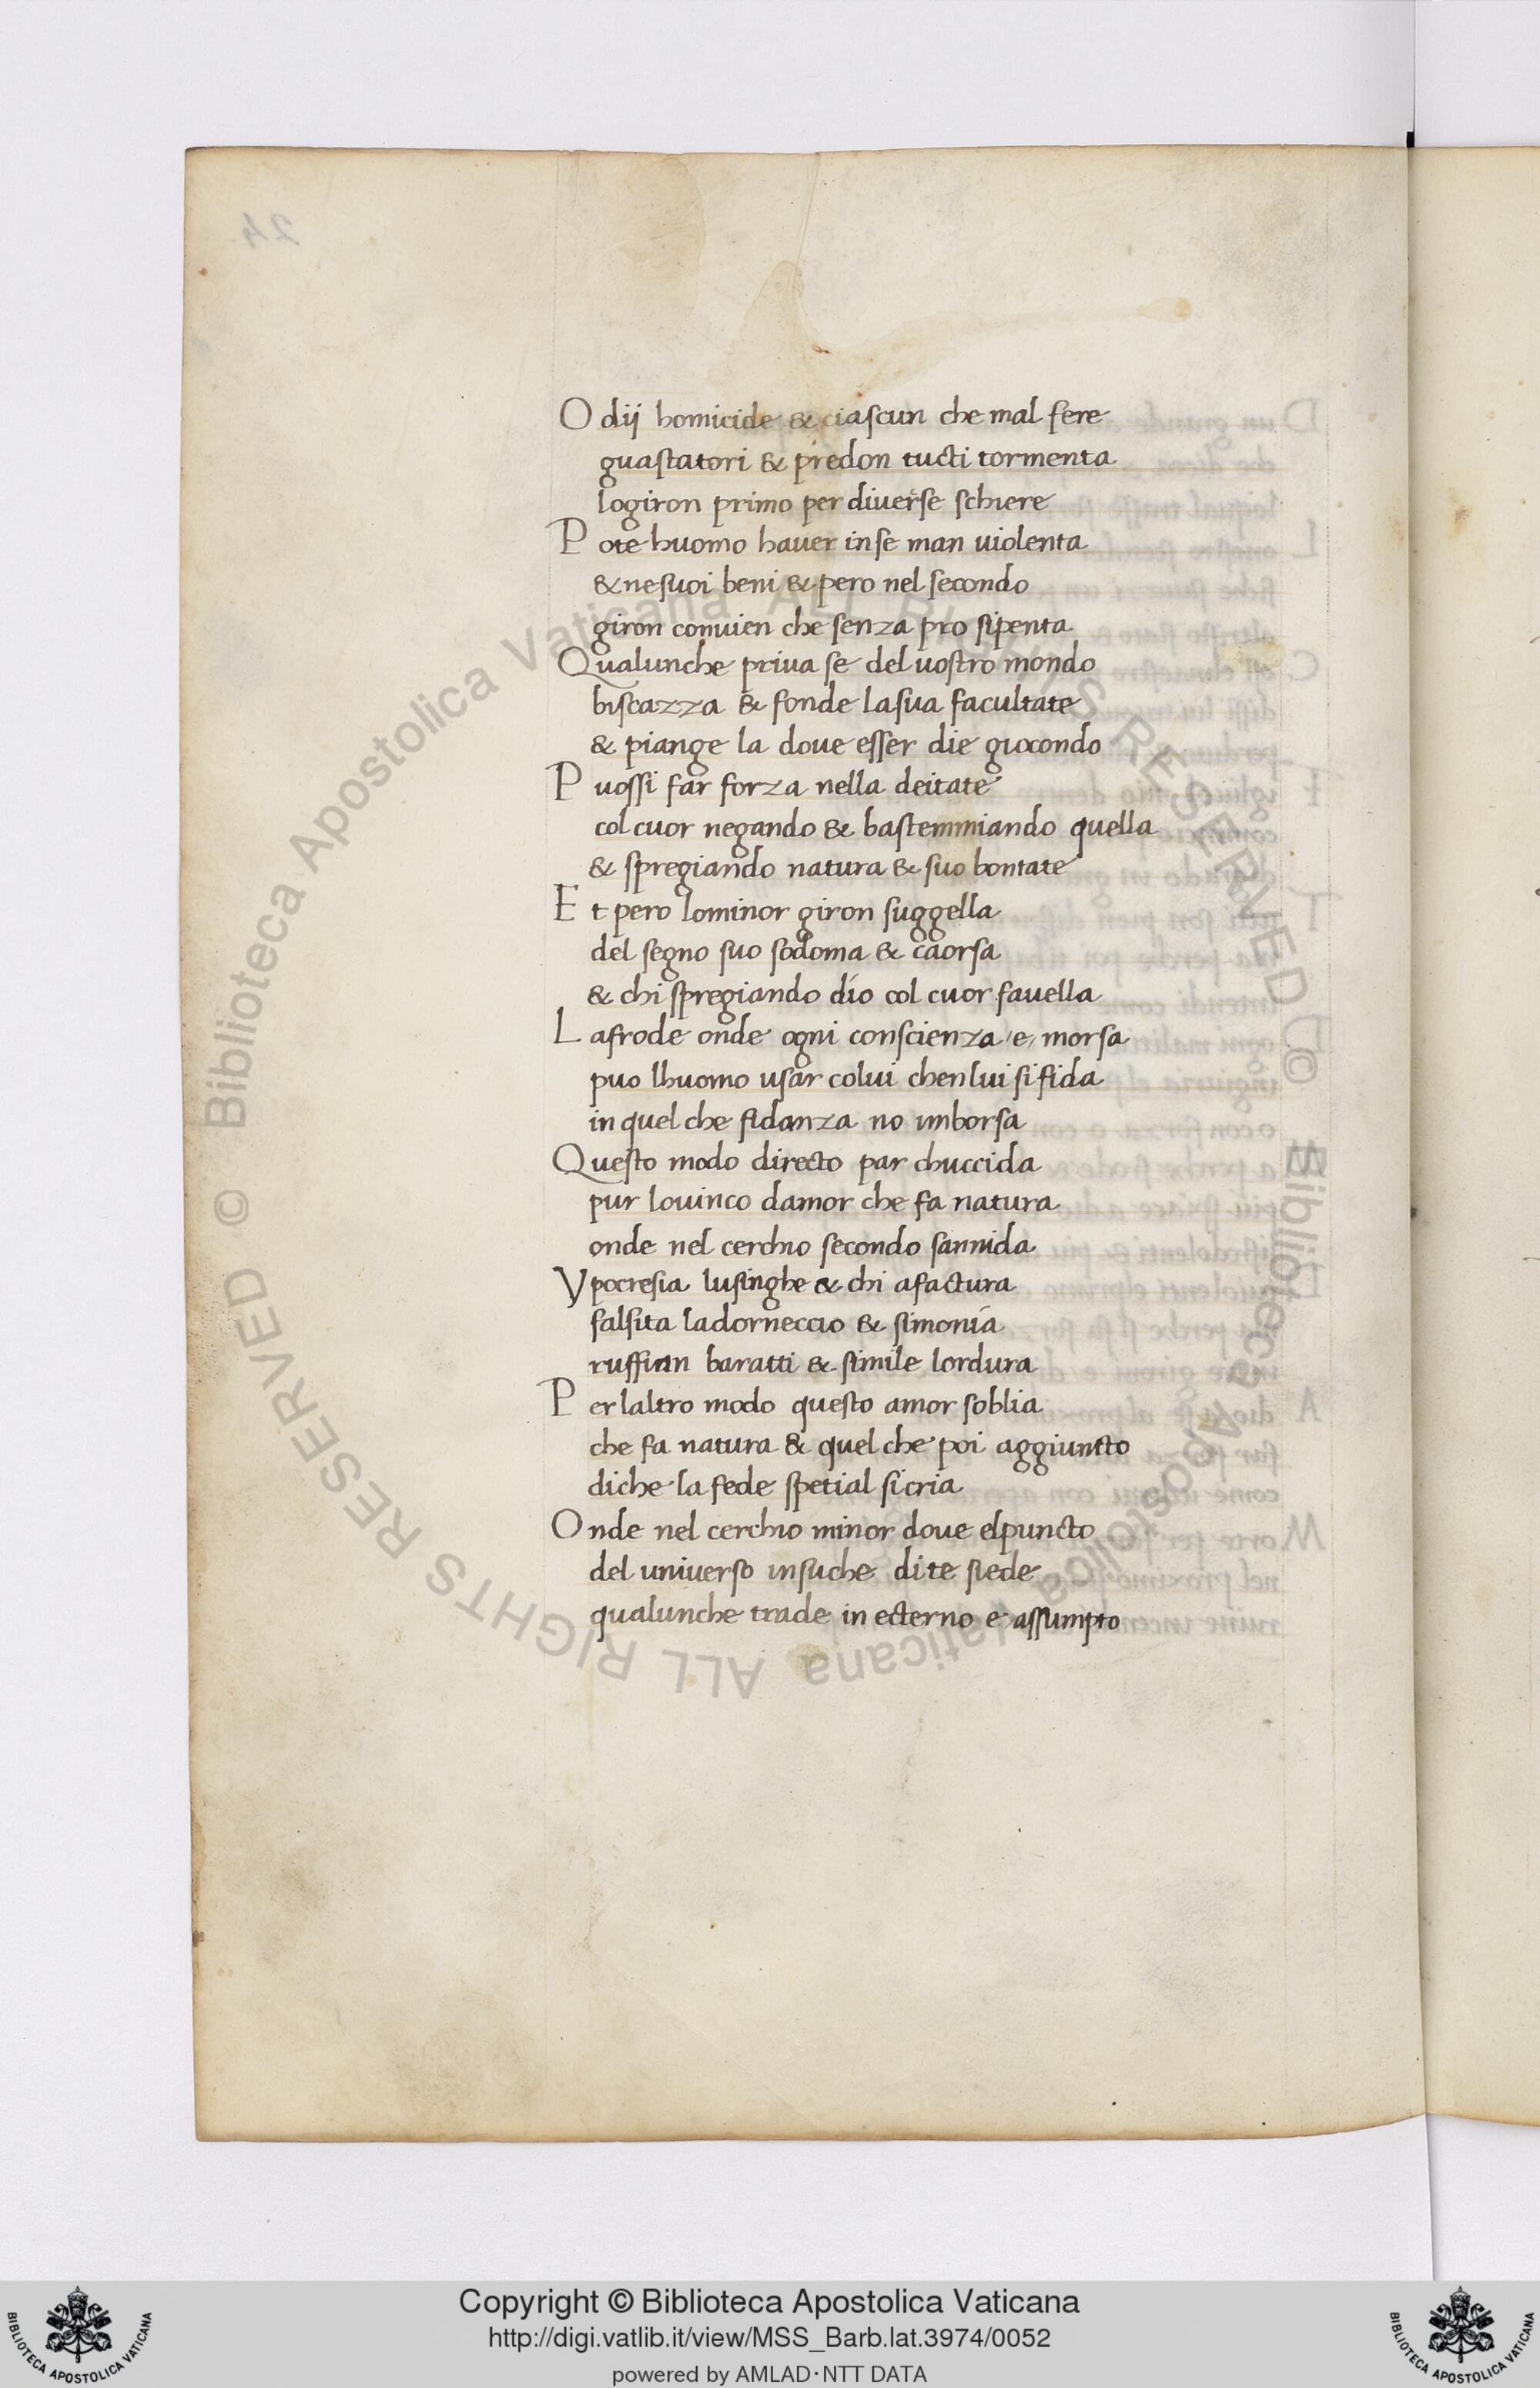 O dij homicide & ciaſcun che mal fere
guaſtatori & predon tucti tormenta
logiron primo per diuerſe ſchiere
P ote huomo hauer in ſe man uiolenta
& ne ſuoi beni & pero nel ſecondo
giron conuien che ſenza pro ſipenta
Qualunche priua ſe del uoſtro mondo
biſcazza & fonde la ſua facultate
& piange la doue eſſer die giocondo
P uoſſi far forza nella deitate
col cuor negando & baſtemmiando quella
& ſpregiando natura & ſuo bontate
E t pero lo minor giron ſuggella
del ſegno ſuo ſodoma & caorſa
& chi ſpregiando dío col cuor fauella
L afrode onde ogni conſcienza /e/ morſa
puo lhuomo uſar colui chen lui ſi fida
in quel che fidanza no imborſa
Q ueſto modo directo par chuccida
pur lo uinco damor che fa natura
onde nel cerchio ſecondo ſannida
Y pocreſia luſinghe & chi afactura
falſita ladorneccio & ſimonía
ruffian baratti & ſimile lordura
P er laltro modo queſto amor ſoblia
che fa natura & quel che poi aggiuncto
diche la fede ſpetial ſi cria
O nde nel cerchio minor doue elpuncto
del uniuerſo in ſuche dite ſiede
qualunche trade in ecterno e aſſumpto
24
Biblioteca Apostolica Vaticana ALL RIGHTS RESERVED ©
Biblioteca Apostolica Vaticana ALL RIGHTS RESERVED ©
Copyright © Biblioteca Apostolica Vaticana
http://digi.vatlib.it/view/MSS_Barb.lat.3974/0052
powered by AMLAD·NTT DATA
BIBLIOTECA APOSTOLICA VATICANA
BIBLIOTECA APOSTOLICA VATICANA